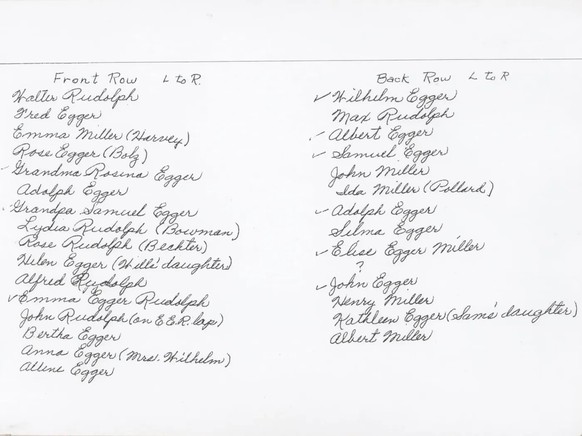 Front Row L to R.
Walter Rudolph
Fred Egger
Emma Miller (Harvey)
Rose Egger (Bolz)
✓ Grandma Rosina Egger
Adolph Egger
Grandpa Samuel Egger
Lydia Rudolph (Bowman)
Rose Rudolph (Bechter)
Helen Egger (Will's daughter)
Alfred Rudolph
✓ Emma Egger Rudolph
John Rudolph (on E.E.R. lap)
Bertha Egger
Anna Egger (Mrs. Wilhelm)
Alline Egger
Back Row L to R
✓ Wilhelm Egger
Max Rudolph
✓ Albert Egger
✓ Samuel Egger
John Miller
Ida Miller (Pollard)
✓ Adolph Egger
Selma Egger
✓ Elise Egger Miller
?
✓ John Egger
Henry Miller
Kathleen Egger (Sam's daughter)
Albert Miller